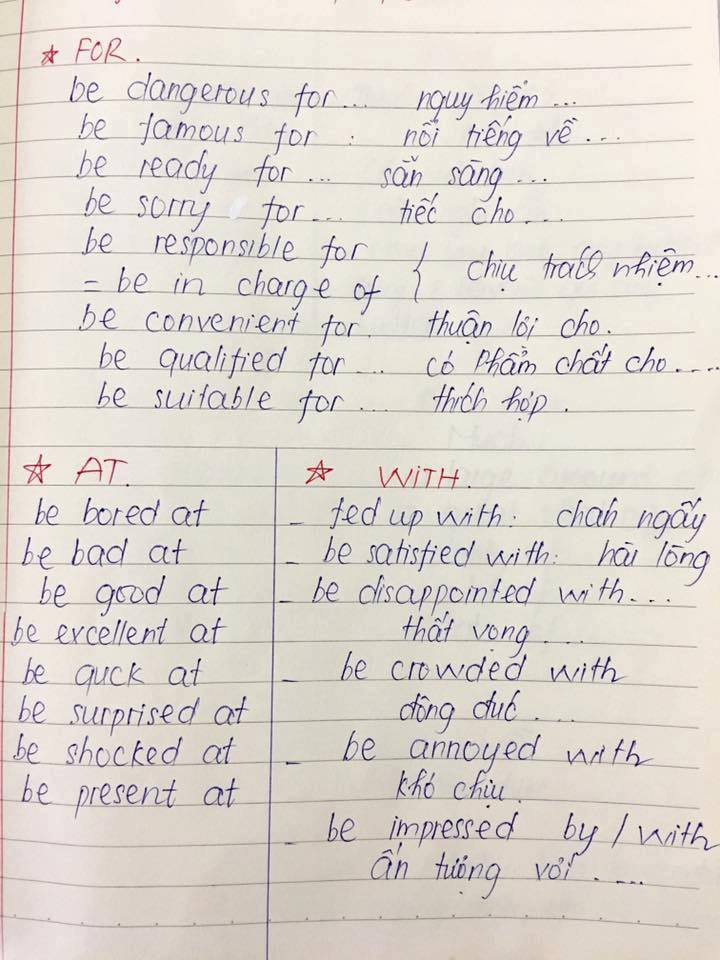 ★ FOR.
be dangerous for... nguy hiểm...
be famous for : nổi tiếng về...
be ready for... sẵn sàng...
be sorry for... tiếc cho...
be responsible for
= be in charge of } chịu trách nhiệm...
be convenient for. thuận lôi cho.
be qualified for... có phẩm chất cho....
be suitable for... thích hợp.
★ AT.
be bored at
be bad at
be good at
be excellent at
be quck at
be surprised at
be shocked at
be present at
★ WITH.
- fed up with: chah ngấy
- be satisfied with: hài lòng
- be disappointed with...
thất vọng...
- be crowded with
đông đuć...
- be annoyed with
khó chịu.
- be impressed by / with
ấn tượng với....